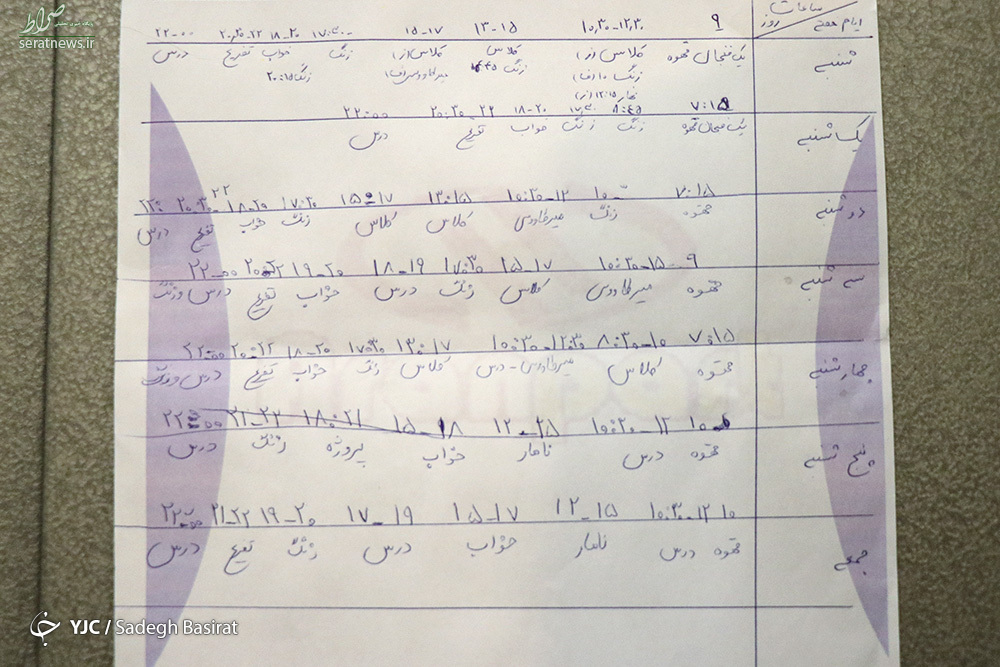 صراط
seratnews.ir
ساعات
ایام هفته روز
۹ ۱۰:۳۰-۱۲:۳۰ ۱۳-۱۵ ۱۵-۱۷ ۱۷:۳۰ ۱۸-۲۰ ۲۰:۳۰-۲۲ ۲۲:۰۰
شنبه یک فنجان قهوه کلاس کلاس کلاس زنگ خواب تفریح درس
زنگ زنگ زنگ ۲۰:۱۵
نهار ۱۲:۱۵
۷:۱۵ ۸:۴۵ ۱۷:۳۰ ۱۸-۲۰ ۲۰:۳۰-۲۲ ۲۲:۰۰
یکشنبه یک فنجان قهوه زنگ زنگ خواب تفریح درس
۷:۱۵ ۱۰:۰۰ ۱۰:۳۰-۱۲ ۱۳:۱۵ ۱۵-۱۷ ۱۷:۳۰ ۱۸-۲۰ ۲۰:۳۰-۲۲ ۲۲:۰۰
دوشنبه قهوه زنگ میرطاووسی کلاس کلاس زنگ خواب تفریح درس
۹ ۱۰:۳۰-۱۵ ۱۵-۱۷ ۱۷:۳۰ ۱۸-۱۹ ۱۹-۲۰ ۲۰-۲۲ ۲۲:۰۰
سه شنبه قهوه میرطاووسی کلاس زنگ درس خواب تفریح درس و زنگ
۷:۱۵ ۸:۳۰-۱۰ ۱۰:۳۰-۱۲:۳۰ ۱۳:۱۷ ۱۷:۳۰ ۱۸-۲۰ ۲۰:۲۲ ۲۲:۰۰
چهارشنبه قهوه کلاس میرطاووسی - درس کلاس زنگ خواب تفریح درس و زنگ
۱۰ ۱۰:۳۰-۱۲ ۱۲-۱۵ ۱۵-۱۸ ۱۸:۲۱ ۲۱-۲۲ ۲۲:۰۰
پنج شنبه قهوه درس ناهار خواب پروژه زنگ درس
۱۰ ۱۰:۳۰-۱۲ ۱۲-۱۵ ۱۵-۱۷ ۱۷-۱۹ ۱۹-۲۰ ۲۱-۲۲ ۲۲:۰۰
جمعه قهوه درس ناهار خواب درس زنگ تفریح درس
YJC / Sadegh Basirat